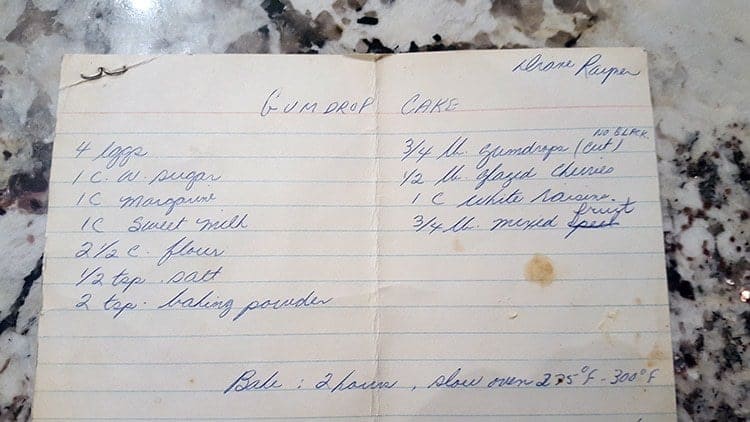 Diane
GUMDROP CAKE
4 eggs
1 C. W. sugar
1 C margarine
1 C Sweet milk
2 1/2 c. flour
1/2 tsp. salt
2 tsp. baking powder
NO BLACK
3/4 lb. gumdrops (cut)
1/2 lb. glazed cherries
1 C white raisins.
fruit
3/4 lb. mixed peel
Bake : 2 hours, slow oven 275°F - 300°F